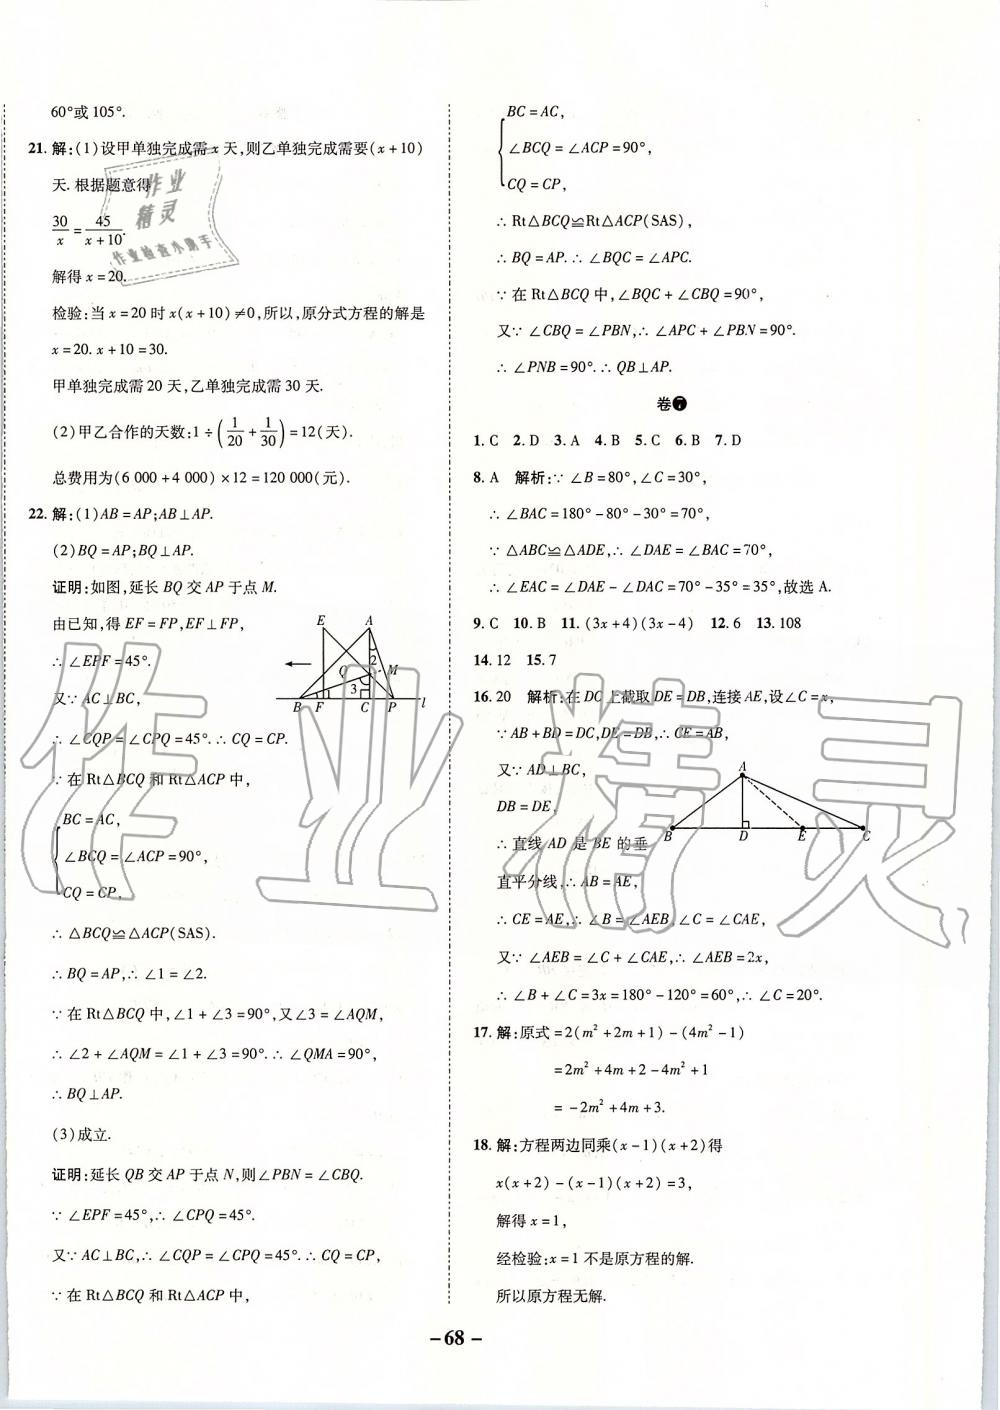 60°或105°.
21. 解:(1)设甲单独完成需x天,则乙单独完成需要(x+10)
天.根据题意得
30/x = 45/(x+10).
解得x=20.
检验:当x=20时x(x+10)≠0,所以,原分式方程的解是
x=20. x+10=30.
甲单独完成需20天,乙单独完成需30天.
(2)甲乙合作的天数:1÷(1/20+1/30)=12(天).
总费用为(6 000+4 000)×12=120 000(元).
22. 解:(1)AB=AP;AB⊥AP.
(2)BQ=AP;BQ⊥AP.
证明:如图,延长BQ交AP于点M.
由已知,得EF=FP,EF⊥FP,
∴∠EPF=45°.
又∵AC⊥BC,
∴∠CQP=∠CPQ=45°.∴CQ=CP.
∵在Rt△BCQ和Rt△ACP中,
BC=AC,
∠BCQ=∠ACP=90°,
CQ=CP,
∴△BCQ≌△ACP(SAS).
∴BQ=AP,∴∠1=∠2.
∵在Rt△BCQ中,∠1+∠3=90°,又∠3=∠AQM,
∴∠2+∠AQM=∠1+∠3=90°.∴∠QMA=90°,
∴BQ⊥AP.
(3)成立.
证明:延长QB交AP于点N,则∠PBN=∠CBQ.
∵∠EPF=45°,∴∠CPQ=45°.
又∵AC⊥BC,∴∠CQP=∠CPQ=45°.∴CQ=CP,
∵在Rt△BCQ和Rt△ACP中,
E A
Q 2 M
1 3
B F C P l
BC=AC,
∠BCQ=∠ACP=90°,
CQ=CP,
∴Rt△BCQ≌Rt△ACP(SAS),
∴BQ=AP.∴∠BQC=∠APC.
∵在Rt△BCQ中,∠BQC+∠CBQ=90°,
又∵∠CBQ=∠PBN,∴∠APC+∠PBN=90°.
∴∠PNB=90°.∴QB⊥AP.
卷七
1. C 2. D 3. A 4. B 5. C 6. B 7. D
8. A 解析:∵∠B=80°,∠C=30°,
∴∠BAC=180°-80°-30°=70°,
∵△ABC≌△ADE,∴∠DAE=∠BAC=70°,
∴∠EAC=∠DAE-∠DAC=70°-35°=35°,故选A.
9. C 10. B 11. (3x+4)(3x-4) 12. 6 13. 108
14. 12 15. 7
16. 20 解析:在DC上截取DE=DB,连接AE,设∠C=x,
∵AB+BD=DC,DE=DB,∴CE=AB,
又∵AD⊥BC,
DB=DE,
∴直线AD是BE的垂
直平分线,∴AB=AE,
∴CE=AE,∴∠B=∠AEB,∠C=∠CAE,
又∵∠AEB=∠C+∠CAE,∴∠AEB=2x,
∴∠B+∠C=3x=180°-120°=60°,∴∠C=20°.
A
B D E C
17. 解:原式=2(m²+2m+1)-(4m²-1)
=2m²+4m+2-4m²+1
=-2m²+4m+3.
18. 解:方程两边同乘(x-1)(x+2)得
x(x+2)-(x-1)(x+2)=3,
解得x=1,
经检验:x=1不是原方程的解.
所以原方程无解.
-68-
作业
精灵
作业检查小助手
作业精灵